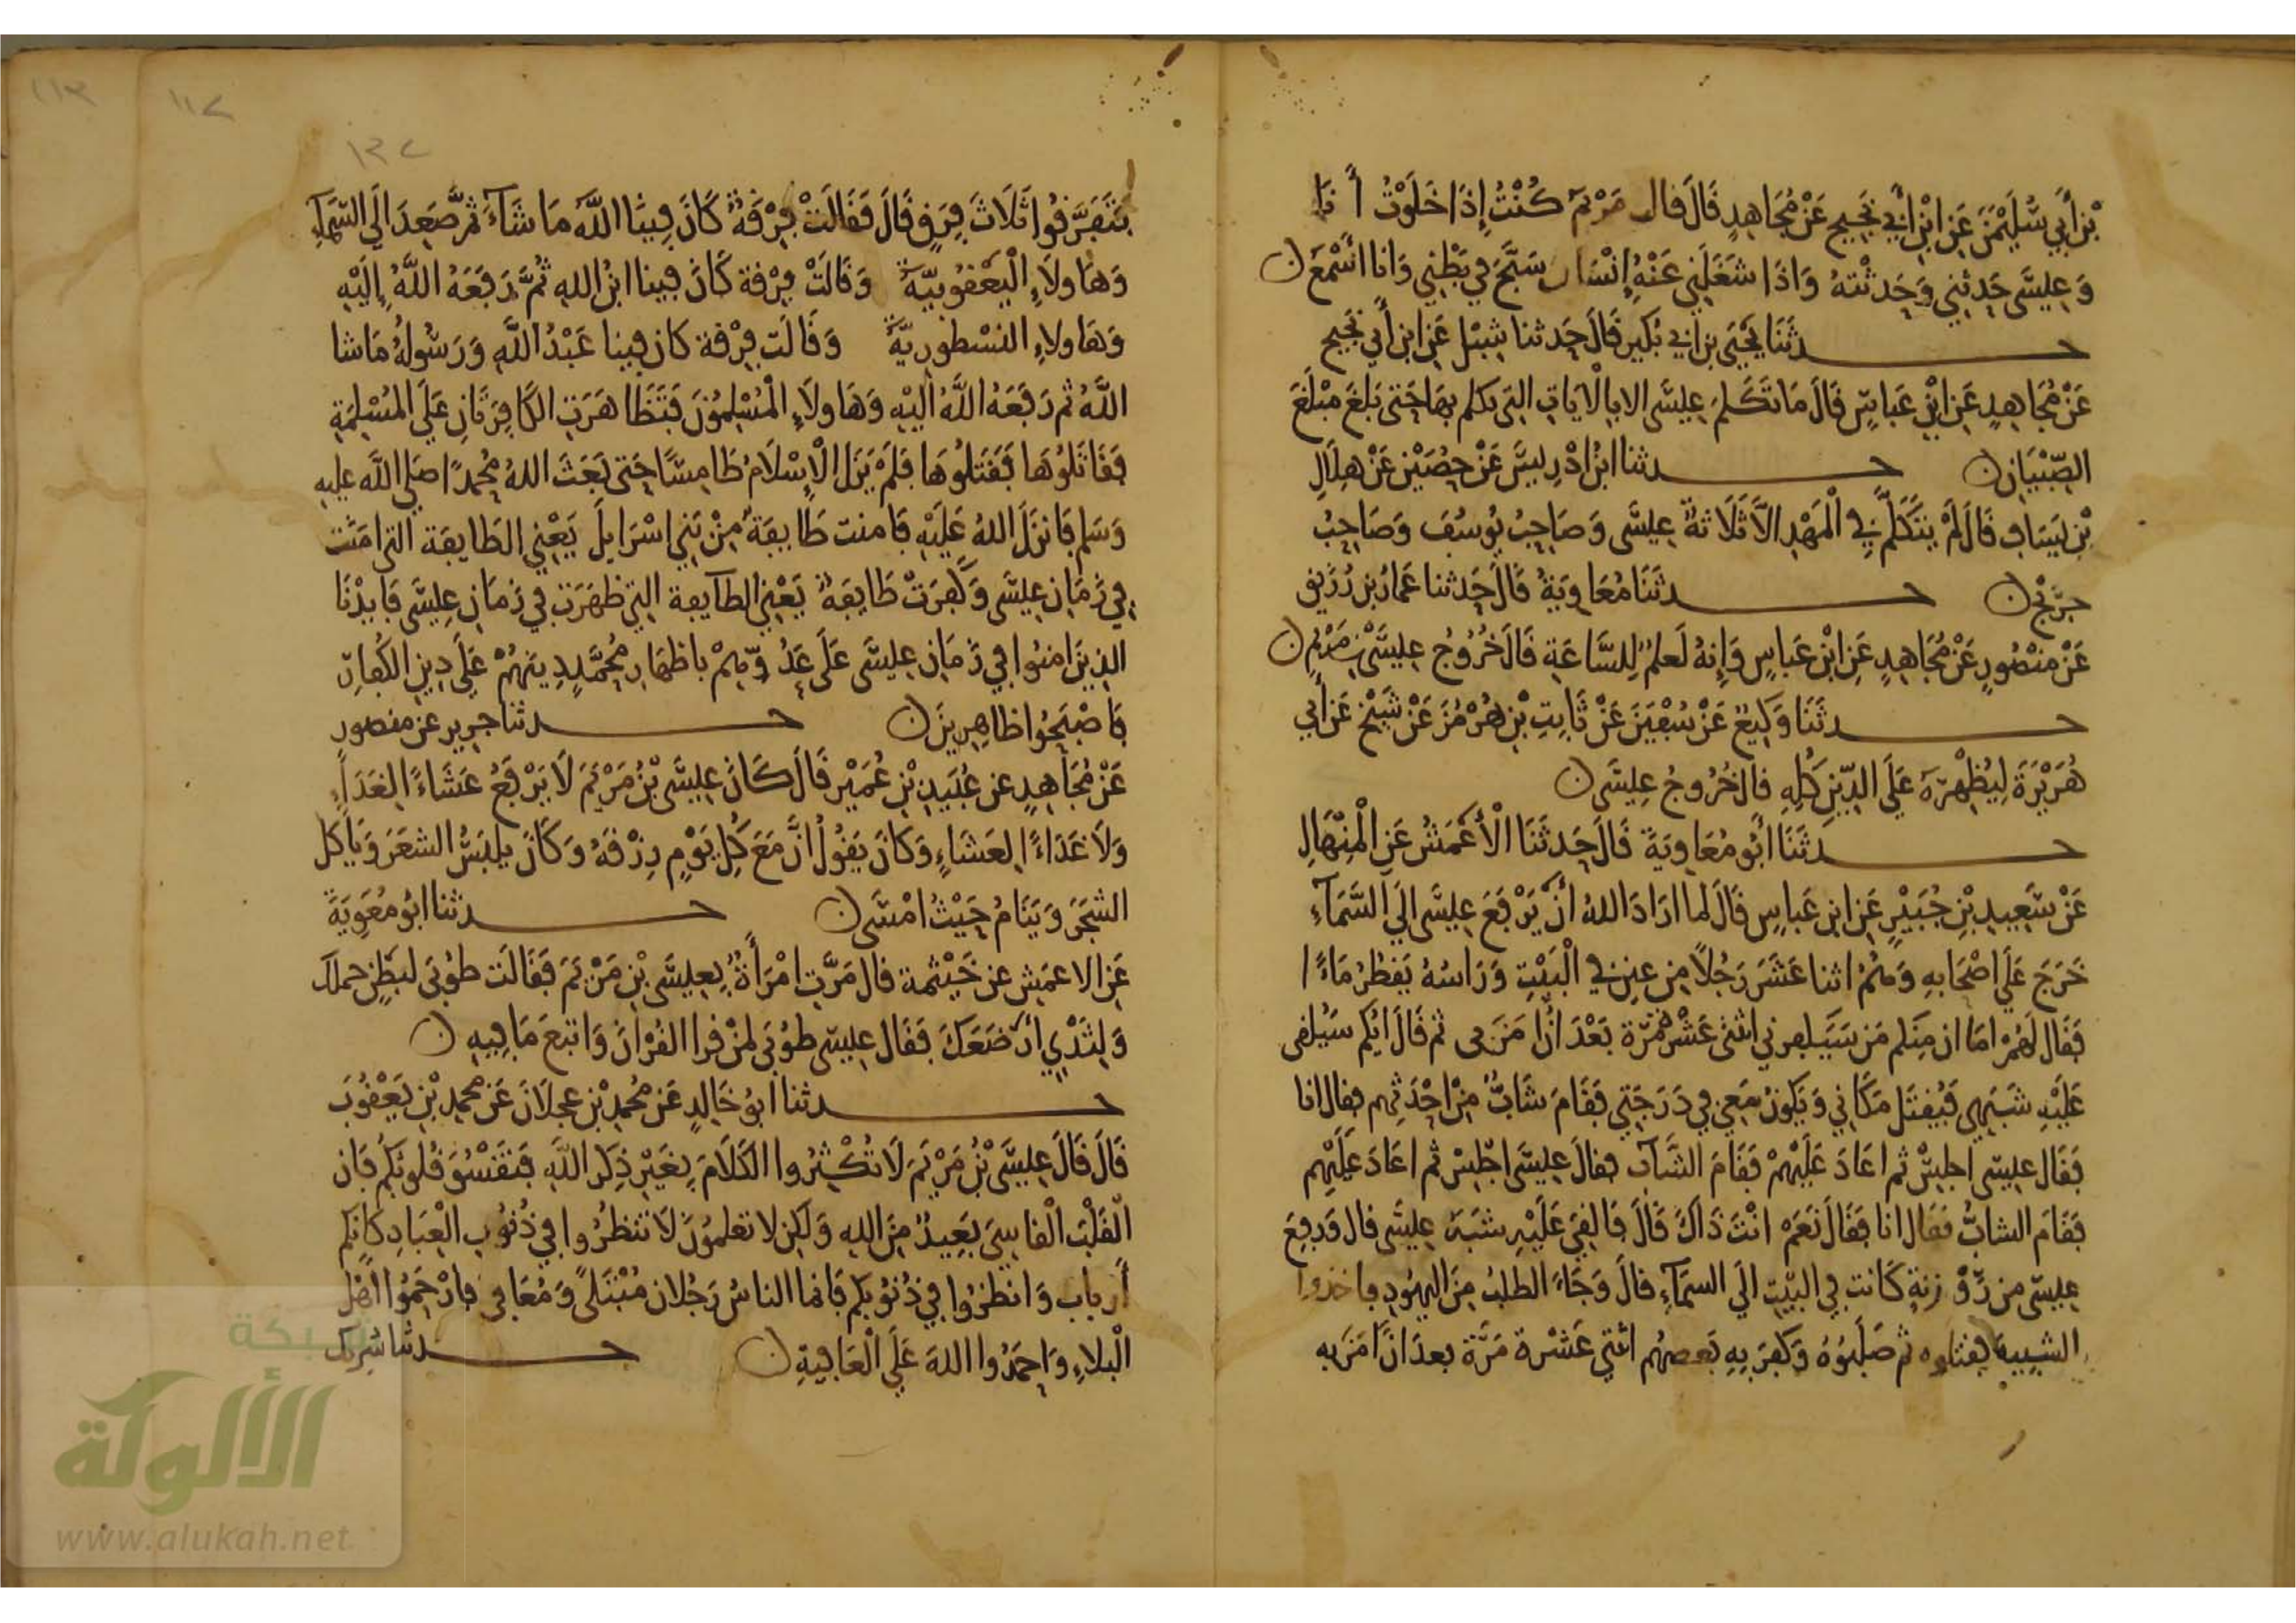 بْن أَبِي سُلَيْمٰنَ عَنِ ابْنِ أَبِي نَجِيحٍ عَنْ مُجَاهِدٍ قَالَ قال مَرْيَم كُنْتُ إِذَا خَلَوْتُ أَنا
وَعِيسَى حَدثني وَحَدثْتهُ وَاذَا شَغَلَنِي عَنْهُ إِنْسَان سَبَّحَ في بَطْنِي وَانا اسْمَعُ ن
حـــدثَنَا يَحْيَى بن ابي بُكَيْر قَالَ حَدثنا شِبْل عَنِ ابن أَبي نَجِيح
عَنْ مُجَاهِدٍ عَنِ ابْنِ عَباسٍ قَالَ مَا تَكَلم عِيسَى الا بالْايَاتِ التي تكلم بهَا حَتى بَلَغَ مبْلَغَ
الصِّبْيَان ن حـــدثنا ابْنُ ادْرِيسَ عَنْ حُصَيْنٍ عَنْ هِلَالِ
بْنِ يَسَافٍ قَالَ لَمْ يَتَكَلَّمْ فِي الْمَهْدِ الاَّ ثَلَاثةٌ عِيسَى وَصَاحِبُ يُوسُفَ وَصَاحِبُ
جرَيْج ن حـــدثَنَا مُعَاوِيَةُ قَالَ حَدثنا عَمارُ بن رُزَيق
عَنْ مَنْصُورٍ عَنْ مُجَاهِدٍ عَنِ ابْنِ عَباسٍ وَإِنهُ لَعلمٌ لِلسَّاعَةِ قَالَ خُرُوجُ عِيسَى بْنِ مَرْيَمَ ن
حـــدثَنَا وَكِيعٌ عَنْ سُفْيَنَ عَنْ ثَابِتِ بْنِ هُرْمُزَ عَنْ شَيْخٍ عَنْ أَبي
هُرَيْرَةَ لِيُظْهِرَهُ عَلَى الدِّينِ كُلِهِ قال خُرُوجُ عِيسَى ن
حـــدثَنَا ابُو مُعَاوِيَةَ قَالَ حَدثَنَا الْأَعْمَشُ عَنِ الْمِنْهَالِ
عَنْ سَعِيدِ بْنِ جُبَيْرٍ عَنِ ابن عَباسٍ قَالَ لما ارَادَ اللهُ أنْ يَرْفَعَ عِيسَى الَى السَّمَآءِ
خَرَجَ عَلَى اصْحَابِهِ وَهُمْ اثنا عَشَرَ رَجُلًا مِن عين في الْبَيْتِ وَرَاسُهُ يَقطُرُ مَاءً
فَقَال لَهُمْ امَا ان مِنكم مَن سَيَكفر بي اثنتى عَشْرة مَرّة بَعْدَ انْ امَن بي ثم قَالَ ايُّكم سَيُلقى
عَلَيْهِ شَبَهِي فَيُقتَل مَكَانِي وَيَكونُ مَعي فِي دَرَجَتِي فقَامَ شَابٌّ مِنْ احْدَثِهم فقال انا
فَقَال عِيسَى اجلِسْ ثم اعَادَ عَلَيْهِمْ فَقَامَ الشَّابّ فقالَ عِيسَى اجْلِسْ ثم اعَادَ عَلَيْهِم
فَقَامَ الشابُّ فقَال انا فقَالَ نَعَمْ انْتَ ذَاكَ قَالَ فَالْقِيَ عَلَيْهِ شَبَهُ عِيسَى قال وَرُفِعَ
عِيسَى مِن رَّوْزنةٍ كَانت فِي البَيْتِ الَى السمَآءِ قالَ وَجَآءَ الطلبُ مِنَ اليَهُودِ فاخذوا
الشبِيهَ فقتلوه ثم صَلَبُوْهُ وَكفرَ بهِ بَعضهُم اثنتي عَشْرة مَرَّة بعدَ انْ امَنَ به
فَتَفَرَّقُوا ثَلَاثَ فِرَقٍ قَالَ فَقَالَتْ فِرْقَةٌ كَانَ فِينَا اللَّهُ مَا شَآءَ ثم صَعِدَ الَى السَّمَآءِ
وَهَاولَاءِ الْيَعْقُوبِيَّةُ وَقَالَتْ فِرْقة كَانَ فِينا ابنُ اللهِ ثُمَّ رَفَعَهُ اللَّهُ إِلَيْهِ
وَهَاولاءِ النسْطورِيَّةُ وَقَالَت فِرْقة كان فِينا عَبْدُ اللَّهِ وَرَسُولُهُ مَا شا
اللَّهُ ثم رَفَعَهُ اللَّهُ الَيْهِ وَهَاولَاءِ الْمُسْلِمُونَ فَتَظَاهَرَتِ الكَافِرَتانِ عَلَى المُسْلِمَةِ
فقَاتَلُوهَا فَقَتَلُوهَا فَلَمْ يَزَلِ الْإِسْلَامُ طَامِسًا حَتى بَعَثَ اللهُ مُحمدًا صَلى اللَّه عليه
وَسَلم فَانزَلَ اللهُ عَلَيْهِ فَامنت طَايِفَةٌ مِنْ بَنِي اسْرَايلَ يَعْنِي الطَايفَة التي امَنَت
فِي زَمَانِ عِيسَى وَكَفَرَتْ طَايفَةٌ يَعْنِي الطآيفة التِي كفرَت فِي زمَانِ عِيسَى فَايدْنَا
الذِينَ امنُوا فِي زَمَانِ عِيسَى عَلَى عَدُوّهِمْ باظهَارِ مُحَمَّدٍ دِينَهُمْ عَلَى دِينِ الكُفارِ
فَاصْبَحُوا ظَاهِرِينَ ن حـــدثنا جرير عن منصور
عَنْ مُجَاهِدٍ عن عُبَيدِ بْنِ عُمَيْر قَالَ كَانَ عِيسَى بْنُ مَرْيَمَ لَا يَرْفَعُ عَشَاءً الِغَدَاءٍ
وَلَا غَدَاءً الِعَشَاءٍ وَكَانَ يَقُولُ انَّ مَعَ كُلِ يَوْمٍ رِزْقَهُ وَكَانَ يلبَسُ الشعَرَ وَيَاكل
الشجَرَ وَيَنَامُ حَيْثُ امْسَى ن حـــدثنا ابُو مُعَوِيَةَ
عَنِ الاعمَشِ عن خَيْثمة قال مَرَّتِ امْرَأَةٌ بِعِيسَى بْنِ مَرْيَمَ فَقَالَت طُوْبَى لبَطنٍ حملكَ
وَلِثَدْيٍ ارْضَعَكَ فقَال عِيسَى طوْبَى لمَنْ قرا القُرْانَ وَاتبَعَ مَا فِيهِ ن
حـــدثنا ابُو خَالِدٍ عَن مُحمدِ بْن عجلَانَ عَن محمدِ بْن يَعْقُوبَ
قَالَ قَالَ عِيسَى بْنُ مَرْيَمَ لَا تُكْثِرُوا الكَلَامَ بِغَيْرِ ذِكرِ اللَّهِ فتَقْسُوَ قُلوبُكم فَان
الْقَلْبَ الْقَاسِيَ بَعِيدٌ مِنَ اللهِ وَلكِن لا تعلمُوْنَ لَا تنظُرُوا فِي ذُنوُبِ الْعِبَادِ كَانكم
أَرباب وَانظرُوا فِي ذُنُوبكم فَانما الناسُ رَجُلان مُبْتَلًى وَمُعَافى فارْحَمُوا اهْل
الْبلاءِ وَاحمَدُوا اللهَ عَلَى الْعَافِيةِ ن حـــدثنا شَرِيك
١١٢
١١٣
١٣٢
شبكة
الألوكة
www.alukah.net